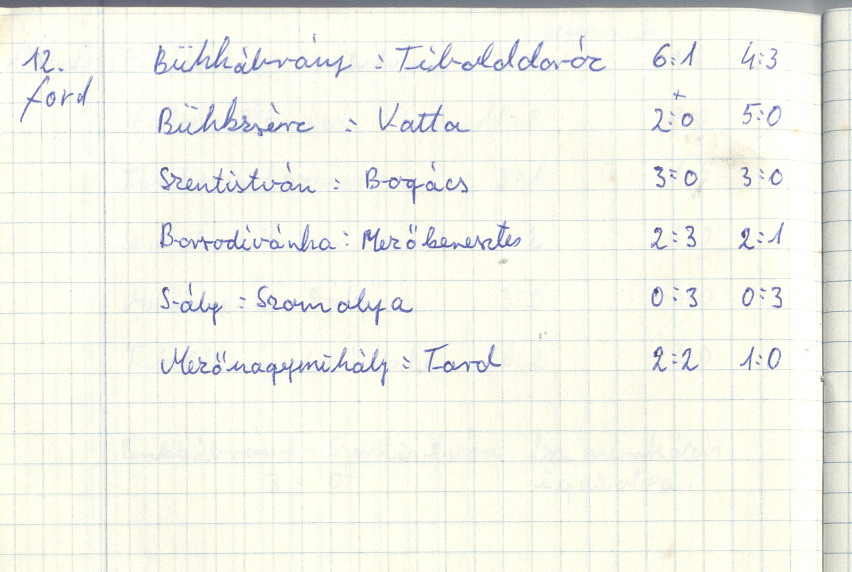 12. Bükkábrány : Tibolddaróc 6:1 4:3
ford
+
Bükkzsérc : Vatta 2:0 5:0
Szentistván : Bogács 3:0 3:0
Borsodivánka : Mezőkeresztes 2:3 2:1
Sály : Szomolya 0:3 0:3
Mezőnagymihály : Tard 2:2 1:0